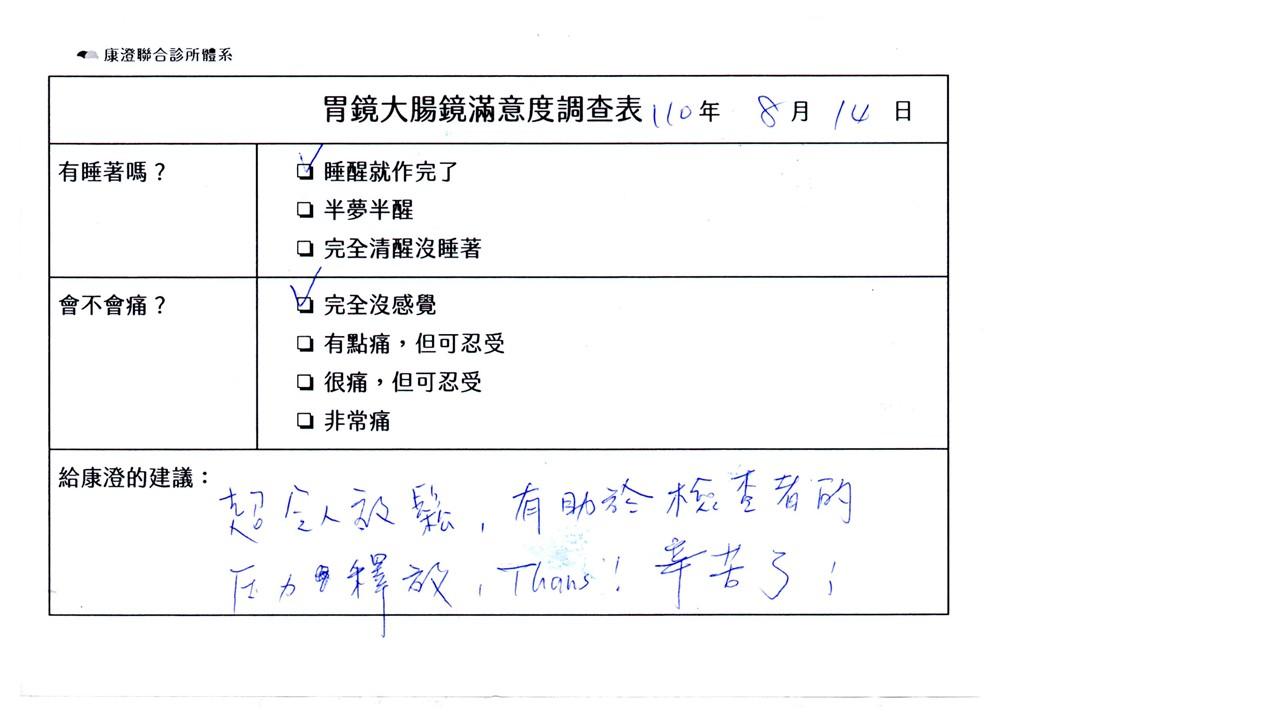 康澄聯合診所體系
胃鏡大腸鏡滿意度調查表 110年 8月 14日
有睡著嗎？
睡醒就作完了
半夢半醒
完全清醒沒睡著
會不會痛？
完全沒感覺
有點痛，但可忍受
很痛，但可忍受
非常痛
給康澄的建議：
超令人放鬆，有助於檢查者的
压力釋放，Thans！辛苦了；